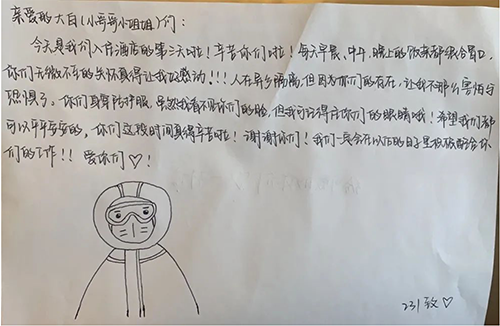 亲爱的大白(小哥哥小姐姐)们：
今天是我们入住酒店的第三天啦！辛苦你们啦！每天早晨、中午、晚上的饭菜都很合胃口，
你们无微不至的关怀真得让我好感动！！！人在异乡隔离，但因为你们的存在，让我不那么害怕与
恐惧了。你们身穿防护服，虽然我看不见你们的脸，但我可记得住你们的眼睛哦！希望我们都
可以平平安安的，你们这段时间真得辛苦啦！谢谢你们！我们一定会在以后的日子里积极配合你
们的工作！！爱你们♡！
231致♡